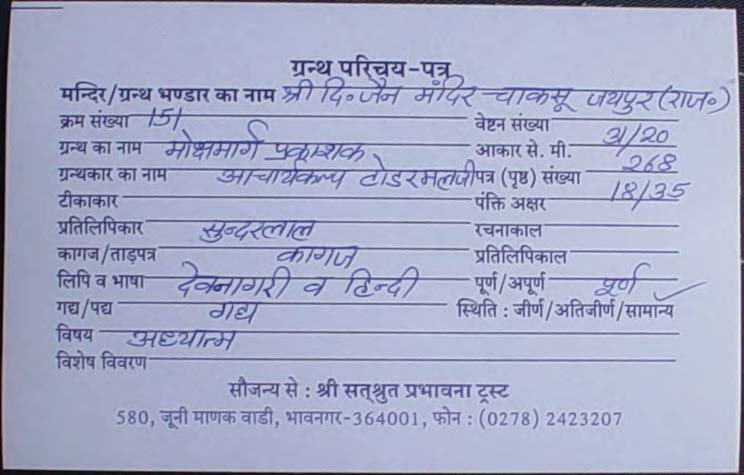 ग्रन्थ परिचय-पत्र
मन्दिर/ग्रन्थ भण्डार का नाम श्री दि॰ जैन मंदिर चाकसू जयपुर (राज॰)
क्रम संख्या 151 वेष्टन संख्या
ग्रन्थ का नाम मोक्षमार्ग प्रकाशक आकार से. मी. 31/20
ग्रन्थकार का नाम आचार्यकल्प टोडरमलजी पत्र (पृष्ठ) संख्या 268
टीकाकार पंक्ति अक्षर 18/35
प्रतिलिपिकार सुन्दरलाल रचनाकाल
कागज/ताड़पत्र कागज प्रतिलिपिकाल
लिपि व भाषा देवनागरी व हिन्दी पूर्ण/अपूर्ण पूर्ण
गद्य/पद्य गद्य स्थिति : जीर्ण/अतिजीर्ण/सामान्य ✓
विषय अध्यात्म
विशेष विवरण
सौजन्य से : श्री सत्श्रुत प्रभावना ट्रस्ट
580, जूनी माणक वाडी, भावनगर-364001, फोन : (0278) 2423207